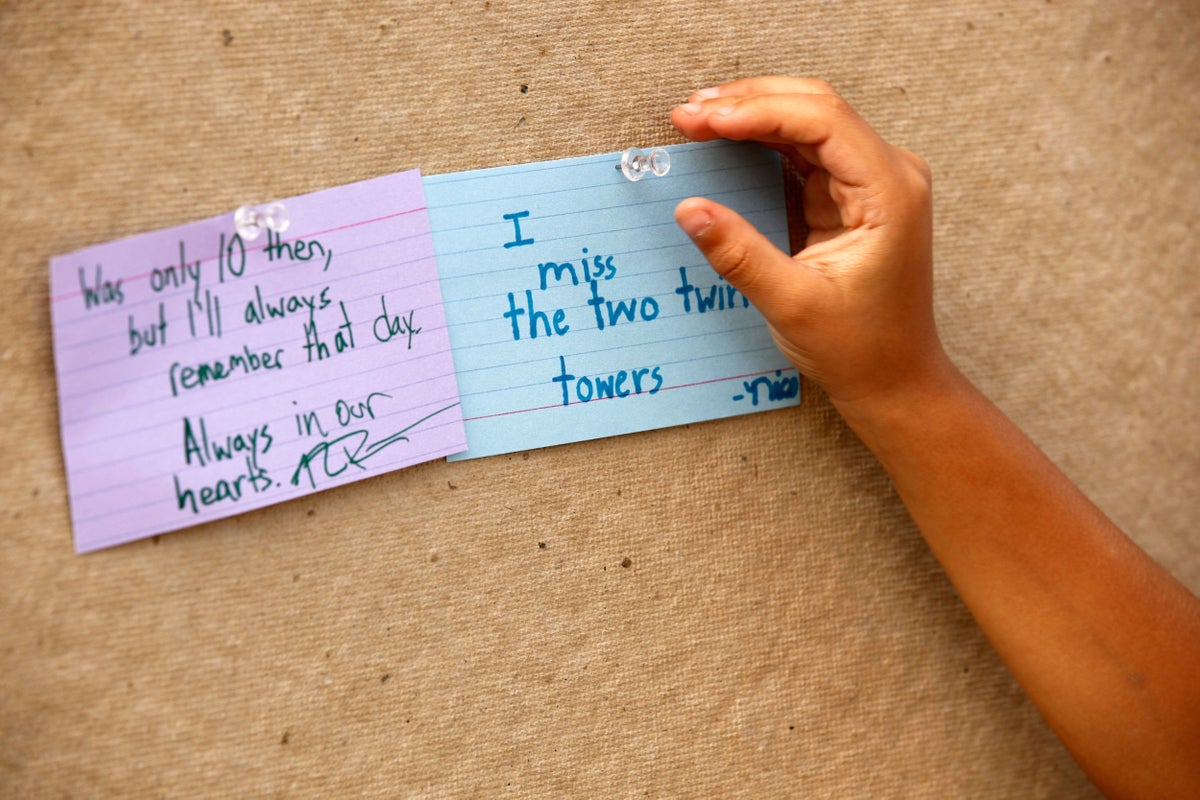 Was only 10 then,
but I'll always
remember that day.
Always in our
hearts.
I
miss
the two twin
towers
-nico